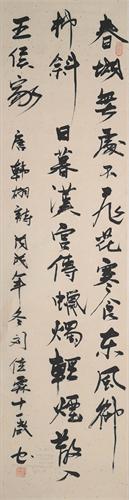 春城無處不飛花寒食东風御
柳斜日暮漢宮傳蠟燭輕煙散入
五侯家唐韓翃詩戊戌年冬刘佳霖十一歲书